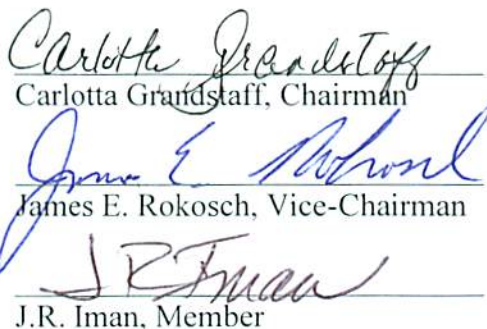 Carlotta Grandstaff
Carlotta Grandstaff, Chairman
James E. Rokosch
James E. Rokosch, Vice-Chairman
J R Iman
J.R. Iman, Member